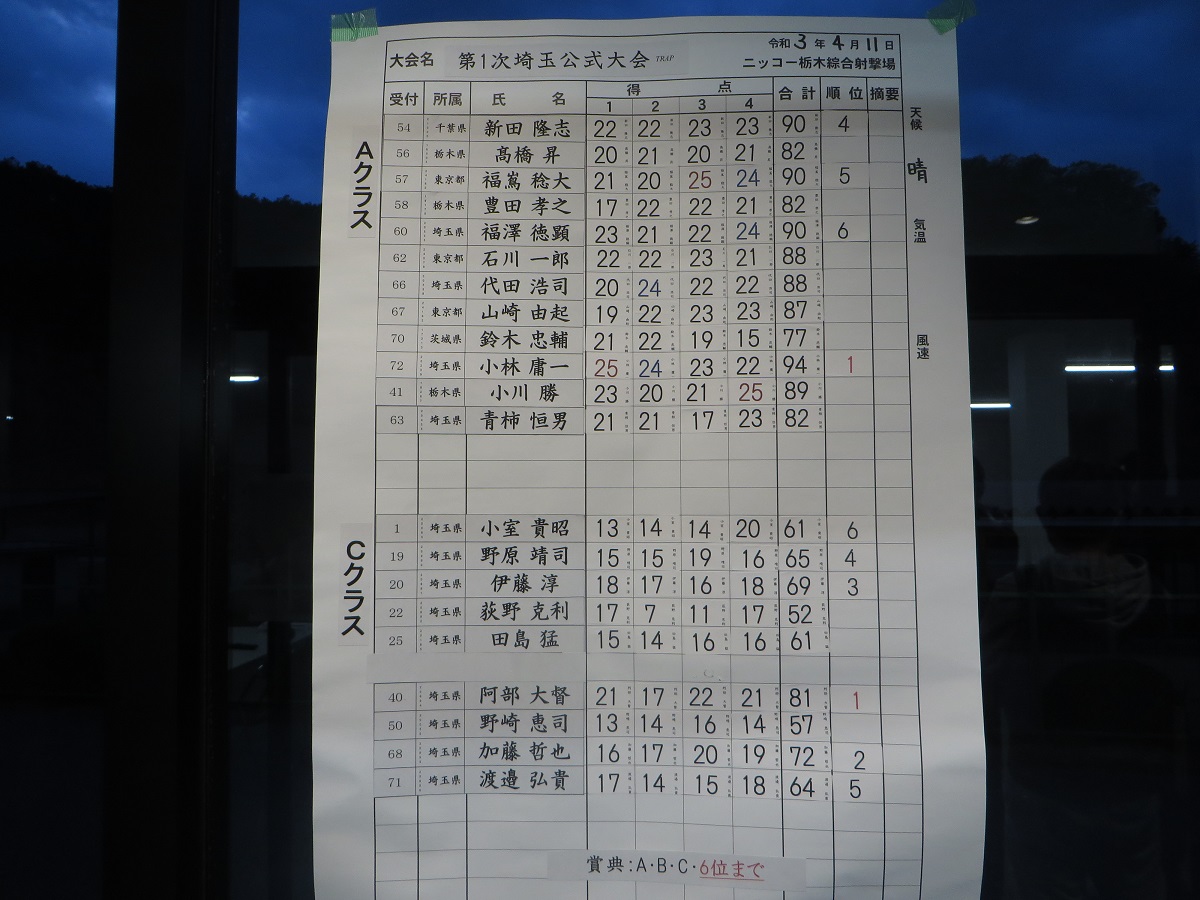 令和 3 年 4 月 11 日
大会名 第1次埼玉公式大会 TRAP ニッコー栃木綜合射撃場
受付 所属 氏 名 得 点 合計 順位 摘要
1 2 3 4
Aクラス
54 千葉県 新田 隆志 22 22 23 23 90 4
56 栃木県 髙橋 昇 20 21 20 21 82
57 東京都 福嶌 稔大 21 20 25 24 90 5
58 栃木県 豊田 孝之 17 22 22 21 82
60 埼玉県 福澤 徳顕 23 21 22 24 90 6
62 東京都 石川 一郎 22 22 23 21 88
66 埼玉県 代田 浩司 20 24 22 22 88
67 東京都 山崎 由起 19 22 23 23 87
70 茨城県 鈴木 忠輔 21 22 19 15 77
72 埼玉県 小林 庸一 25 24 23 22 94 1
41 栃木県 小川 勝 23 20 21 25 89
63 埼玉県 青柿 恒男 21 21 17 23 82
Cクラス
1 埼玉県 小室 貴昭 13 14 14 20 61 6
19 埼玉県 野原 靖司 15 15 19 16 65 4
20 埼玉県 伊藤 淳 18 17 16 18 69 3
22 埼玉県 荻野 克利 17 7 11 17 52
25 埼玉県 田島 猛 15 14 16 16 61
40 埼玉県 阿部 大督 21 17 22 21 81 1
50 埼玉県 野崎 恵司 13 14 16 14 57
68 埼玉県 加藤 哲也 16 17 20 19 72 2
71 埼玉県 渡邉 弘貴 17 14 15 18 64 5
賞典:A・B・C・6位まで
天候
晴
気温
風速